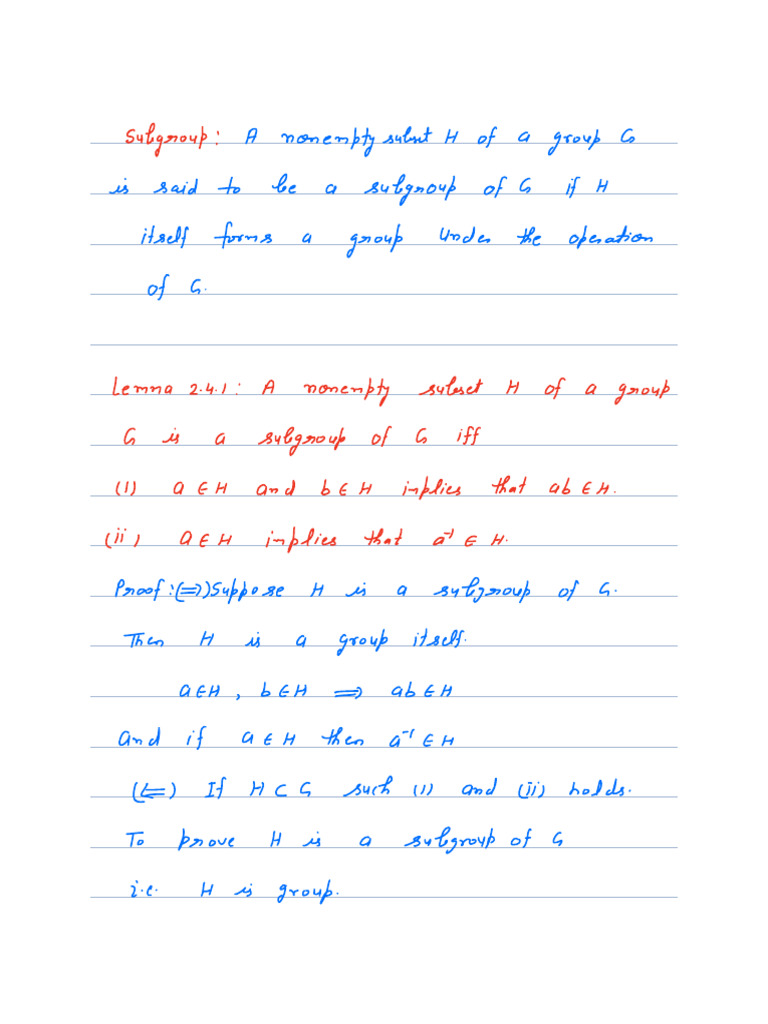 Subgroup: A nonempty subset H of a group G
is said to be a subgroup of G if H
itself forms a group under the operation
of G.
Lemma 2.4.1: A nonempty subset H of a group
G is a subgroup of G iff
(1) a ∈ H and b ∈ H implies that ab ∈ H.
(ii) a ∈ H implies that a⁻¹ ∈ H.
Proof: (⇒) Suppose H is a subgroup of G.
Then H is a group itself.
a ∈ H, b ∈ H ⟹ ab ∈ H
And if a ∈ H then a⁻¹ ∈ H
(⇐) If H ⊂ G such (1) and (ii) holds.
To prove H is a subgroup of G
i.e. H is group.